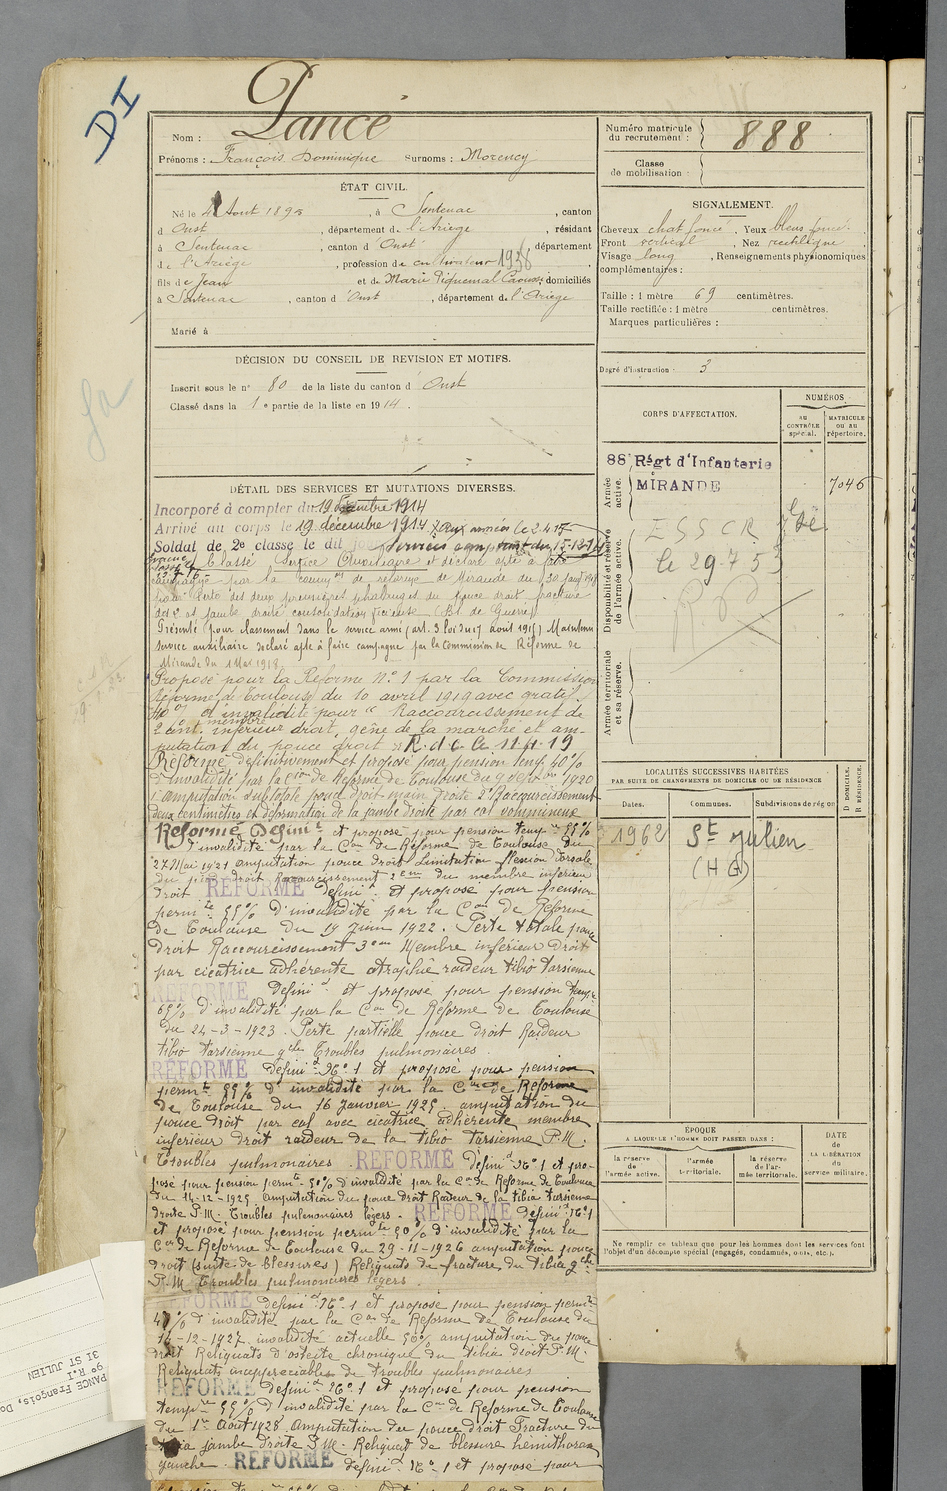 DI
Nom : Pancé
Prénoms : François Dominique Surnoms : Morency
ÉTAT CIVIL.
Né le 4 Aout 189 , à Sentenac , canton
d Oust , département de l'Ariège , résidant
à Sentenac , canton d Oust , département
de l'Ariège , profession de cultivateur 1938
fils de Jean et de Marie Piquemal , domiciliés
à Sentenac , canton d 'Oust , département de l'Ariège
Marié à
DÉCISION DU CONSEIL DE REVISION ET MOTIFS.
Inscrit sous le n° 80 de la liste du canton d Oust
Classé dans la 1 e partie de la liste en 1914 .
DÉTAIL DES SERVICES ET MUTATIONS DIVERSES.
Incorporé à compter du 19 1914
Arrivé au corps le 19 décembre 1914 aux armées le 2 4 15
Soldat de 2e classe le dit jour
Classé service auxiliaire et déclaré apte à faire
campagne par la de réforme de Mirande du 30
pour perte des deux premières phalanges du pouce droit fracture
de jambe droite consolidation vicieuse (Bl. de Guerre)
Présenté pour classement dans le service armé (art. 3 loi du 17 aout 1915) Maintenu
service auxiliaire déclaré apte à faire campagne par la Commission de Réforme de
Mirande du 1 Mai 1918
Proposé pour la Réforme N° 1 par la Commission
Réforme de Toulouse du 10 avril 1919 avec gratif.
40 % d'invalidité pour " Raccourcissement de
2 cent. membre inférieur droit, gêne de la marche et am-
putation du pouce droit » R.d.C. le 11.4.19
Réformé définitivement et proposé pour pension temp. 40%
d'invalidité par la Cion de Réforme de Toulouse du 9 1920
1° amputation subtotale pouce droit main droite 2° Raccourcissement
deux centimètres et déformation de la jambe droite par cal volumineux
Réformé Définit et proposé pour pension temp 55%
d'invalidité par la Con de Réforme de Toulouse du
27 Mai 1921 amputation pouce droit Limitation flexion dorsale
du pied droit Raccourcissement 3 cm du membre inférieur
droit REFORMÉ Définit et proposé pour pension
permte 55% d'invalidité par la Con de Réforme
de Toulouse du 19 Juin 1922. Perte totale pouce
droit Raccourcissement 3 cm Membre inférieur Droit
par cicatrice adhérente atrophie raideur tibio tarsienne
REFORMÉ Définit et proposé pour pension temp.
65% d'invalidité par la Con de Réforme de Toulouse
du 24-3-1923. Perte partielle pouce droit Raideur
tibio tarsienne gche Troubles pulmonaires.
REFORMÉ Définit N° 1 et proposé pour pension
permte 55% d'invalidité par la Con de Réforme
de Toulouse du 16 Janvier 1925 amputation du
pouce droit par cal avec cicatrice adhérente, membre
inférieur droit raideur de la tibio tarsienne P.M.
Troubles pulmonaires. REFORMÉ Définit N° 1 et pro-
posé pour pension permte 50% d'invalidité par la Con de Réforme de Toulouse
du 14-12-1925 amputation du pouce droit Raideur de la tibia tarsienne
droite P.M. Troubles pulmonaires légers. REFORMÉ Définit N° 1
et proposé pour pension permte 50% d'invalidité par la
Con de Réforme de Toulouse du 29-11-1926 amputation pouce
droit (suite de blessures) Reliquats de fracture du tibia gche
P.M. Troubles pulmonaires légers.
REFORMÉ Définit N° 1 et proposé pour pension permte
% d'invalidité par la Con de Réforme de Toulouse du
-12-1927. invalidité actuelle 50% amputation du pouce
droit Reliquats d'ostéite chronique du tibia droit P.M.
Reliquats inappréciables de troubles pulmonaires
REFORMÉ Définit N° 1 et proposé pour pension
tempre 55% d'invalidité par la Con de Réforme de Toulouse
du 1er Août 1928 Amputation du pouce droit Fracture du
tibia jambe droite P.M. Reliquat de blessure hémithorax
gauche. REFORMÉ Définit N° 1 et proposé pour
Numéro matricule du recrutement : 888
Classe de mobilisation :
SIGNALEMENT.
Cheveux chat foncé , Yeux bleus foncé
Front vertical , Nez rectiligne
Visage long , Renseignements physionomiques
complémentaires :
Taille : 1 mètre 69 centimètres.
Taille rectifiée : 1 mètre centimètres.
Marques particulières :
Degré d'instruction : 3
CORPS D'AFFECTATION.
NUMÉROS
AU CONTRÔLE spécial.
MATRICULE OU AU répertoire.
Armée active.
88e Régt d'Infanterie
MIRANDE 7046
Disponibilité et réserve de l'armée active.
ESSCR
le 29-7-53
Armée territoriale et sa réserve.
LOCALITÉS SUCCESSIVES HABITÉES
PAR SUITE DE CHANGEMENTS DE DOMICILE OU DE RÉSIDENCE
D DOMICILE.
R RÉSIDENCE.
Dates. Communes. Subdivisions de région
1962 St Julien
(HG)
ÉPOQUE
A LAQUELLE L'HOMME DOIT PASSER DANS :
la réserve de l'armée active.
l'armée territoriale.
la réserve de l'armée territoriale.
DATE de LA LIBÉRATION du service militaire.
Ne remplir ce tableau que pour les hommes dont les services font
l'objet d'un décompte spécial (engagés, condamnés, omis, etc.).
PANCE François, Do
9° R.I
31 ST JULIEN